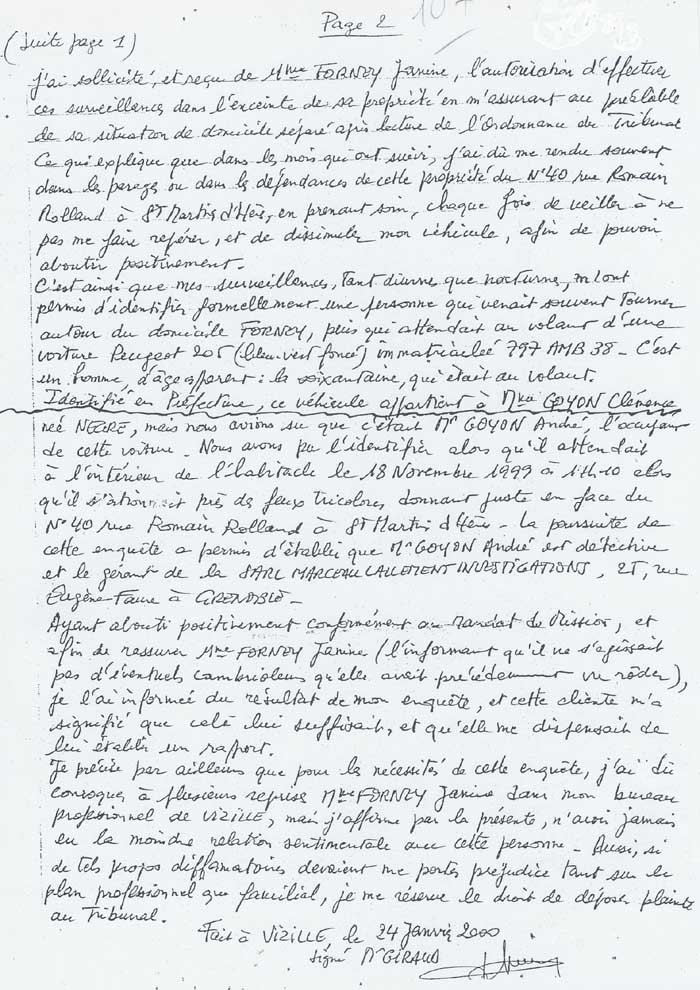 Page 2
(suite page 1)
j'ai sollicité, et reçu de Mme FORNEY Janine, l'autorisation d'effectuer
ces surveillances dans l'enceinte de sa propriété en m'assurant au préalable
de sa situation de domicile séparé après lecture de l'Ordonnance du Tribunal
Ce qui explique que dans les mois qui ont suivi, j'ai dû me rendre souvent
dans les parages ou dans les dépendances de cette propriété du N°40 rue Romain
Rolland à ST Martin d'Hères, en prenant soin, chaque fois de veiller à ne
pas me faire repérer, et de dissimuler mon véhicule, afin de pouvoir
aboutir positivement.
C'est ainsi que mes surveillances, tant diurnes que nocturnes, m'ont
permis d'identifier formellement une personne qui venait souvent tourner
autour du domicile FORNEY, puis qui attendait au volant d'une
voiture Peugeot 205 (bleu-vert foncé) immatriculée 797 AMB 38 - C'est
un homme, d'âge apparent : la soixantaine, qui était au volant.
Identifié en Préfecture, ce véhicule appartient à Mme GOYON Clémence
née NEGRE, mais nous avions su que c'était Mr GOYON André, l'occupant
de cette voiture - Nous avons pu l'identifier alors qu'il attendait
à l'intérieur de l'habitacle le 18 Novembre 1999 à 11h10 alors
qu'il stationnait près des feux tricolores donnant juste en face du
N°40 rue Romain Rolland à ST Martin d'Hères - La poursuite de
cette enquête a permis d'établir que Mr GOYON André est détective
et le gérant de la SARL MARCEAU LALLEMENT INVESTIGATIONS, rue
Eugène Faure à GRENOBLE -
Ayant abouti positivement conformément au Mandat de Mission, et
afin de rassurer Mme FORNEY Janine (l'informant qu'il ne s'agissait
pas d'éventuels cambrioleurs qu'elle avait précédemment vu rôder),
je l'ai informée du résultat de mon enquête, et cette cliente m'a
signifié que celà lui suffisait, et qu'elle me dispensait de
lui établir un rapport.
Je précise par ailleurs que pour les nécessités de cette enquête, j'ai dû
convoquer à plusieurs reprises Mme FORNEY Janine dans mon bureau
professionnel de VIZILLE, mais j'affirme par la présente, n'avoir jamais
eu la moindre relation sentimentale avec cette personne - Aussi, si
de tels propos diffamatoires devaient me porter préjudice tant sur le
plan professionnel que familial, je me réserve le droit de déposer plainte
au Tribunal.
Fait à VIZILLE, le 24 Janvier 2000
signé Mr GIRAUD